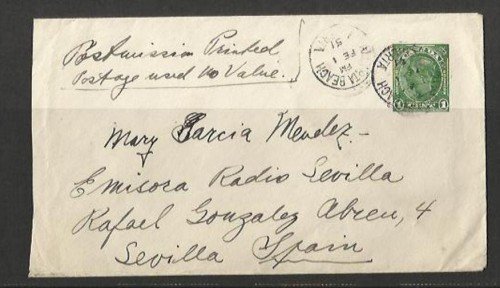 Postmission Printed
Postage used no Value.
BEACH
PM
FE 1
51
CANADA
1 CENT 1
Mary Garcia Mendez -
Emisora Radio Sevilla
Rafael Gonzalez Abreu, 4
Sevilla Spain